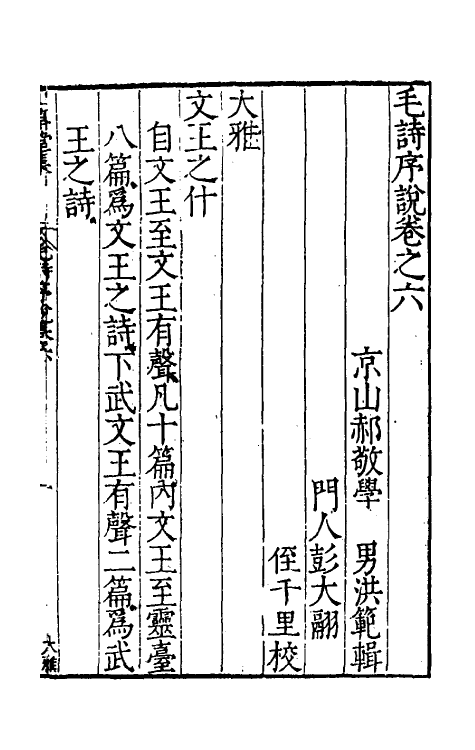 毛詩序說卷之六
京山郝敬學　男洪範輯
門人彭大翮
侄千里校
大雅
文王之什
自文王至文王有聲凡十篇內文王至靈臺
八篇爲文王之詩下武文王有聲二篇爲武
王之詩
大雅